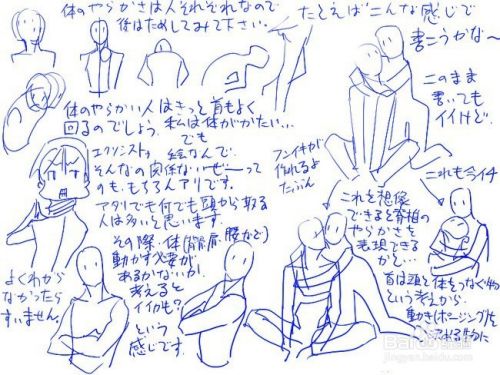 体のやらかさは人それぞれなので
後はためしてみて下さい。
体のやらかい人はきっと首もよく
回るのでしょう。私は体ががたい…
でも
エクソシスト
絵なんで、
そんなの関係ないぜーって
のも、もちろんアリです。
アタリでも何でも頭から取る
人は多いと思います。
その際、体(背肩、腰など)
動かす必要が
あるかないか、
考えると
イイカも?
という
感じです。
よくわから
なかったら
すいません。
たとえばこんな感じで
書こうかな〜
このまま
書いても
イイけど。
フンイキが
作れるよ
たぶん
これも今イチ
これを想像
できると背柏の
やらかさを
表現できる
かと…
首は頭と体をつなぐ物
という考えから、
動き(ポージング)を
jingyan.baidu.com